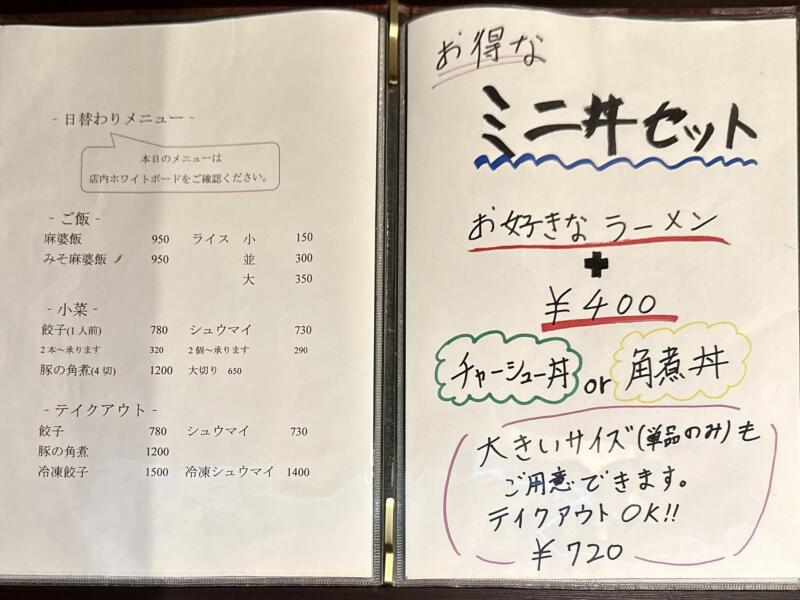 - 日替わりメニュー -
本日のメニューは
店内ホワイトボードをご確認ください。
- ご飯 -
麻婆飯 950 ライス 小 150
みそ麻婆飯 950 並 300
大 350
- 小菜 -
餃子(1人前) 780 シュウマイ 730
2本〜承ります 320 2個〜承ります 290
豚の角煮(4切) 1200 大切り 650
- テイクアウト -
餃子 780 シュウマイ 730
豚の角煮 1200
冷凍餃子 1500 冷凍シュウマイ 1400
お得な
ミニ丼セット
お好きなラーメン
+
¥400
チャーシュー丼 or 角煮丼
大きいサイズ(単品のみ)も
ご用意できます。
テイクアウトOK!!
¥720